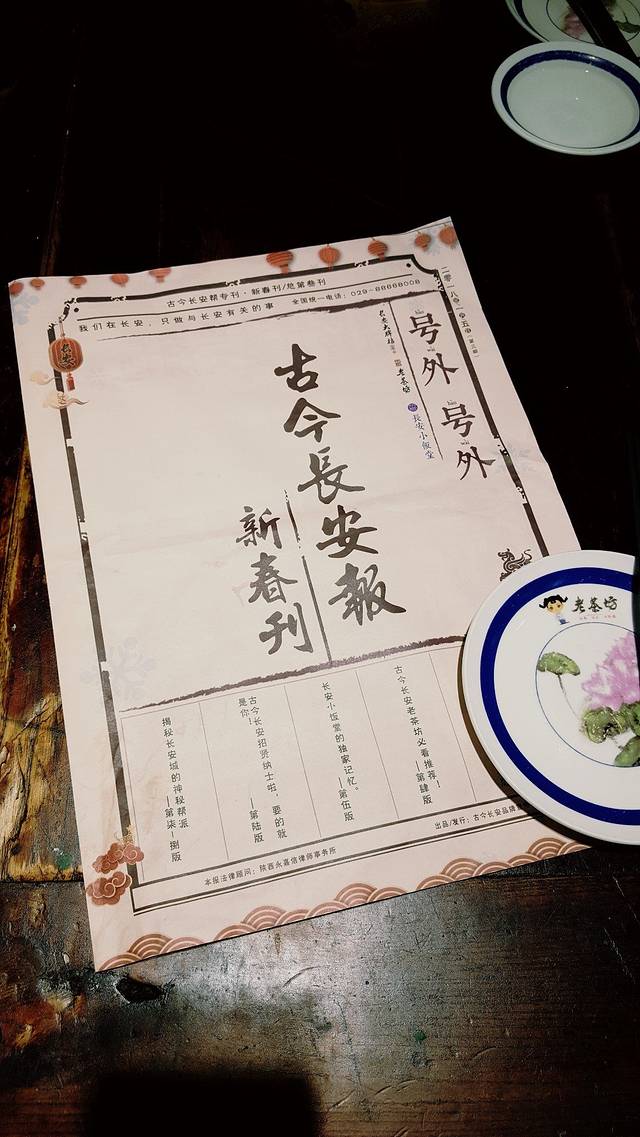 古今长安帮专刊·新春刊/总第叁刊
我们在长安，只做与长安有关的事
全国统一电话：029-88668008
号外号外
hào
wài
hào
wài
老茶坊
長安小饭堂
古今長安報
新春刊
长安
古今长安老茶坊必看推荐！
—第肆版
长安小饭堂的独家记忆。
—第伍版
古今长安招贤纳士啦，要的就
是你！
—第陆版
揭秘长安城的神秘帮派
—第柒-捌版
出品/发行：古今长安品牌
本报法律顾问：陕西永嘉信律师事务所
老茶坊